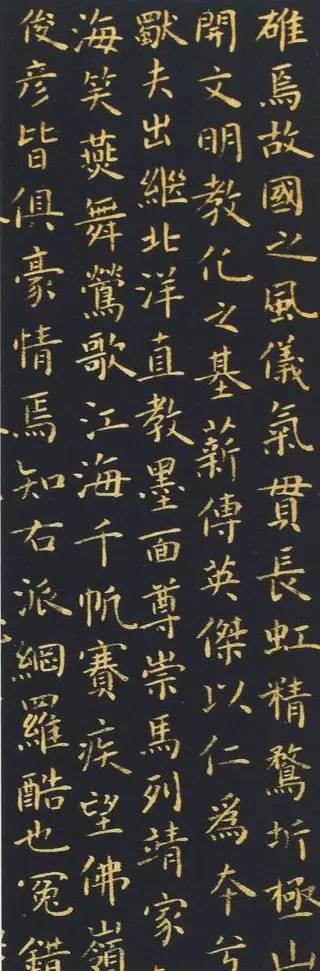 碓焉故國之風儀氣貫長虹精騖圻極山
開文明教化之基薪傳英傑以仁爲本兮
獸夫出繼北洋直教墨面尊崇馬列靖家
海笑燕舞鶯歌江海千帆賽疾望佛嶺
俊彦皆俱豪情焉知右派網羅酷也冤錯